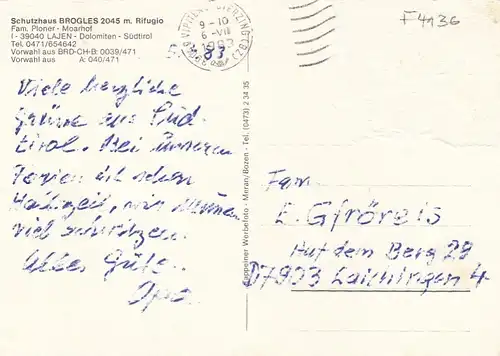 Schutzhaus BROGLES 2045 m. Rifugio
Fam. Ploner - Moarhof
I - 39040 LAJEN - Dolomiten - Südtirol
Tel. 0471/654642
Vorwahl aus BRD-CH-B: 0039/471
Vorwahl aus A: 040/471
9-10
6-VII
1983
F4136
5. 83
Viele herzliche
Grüsse aus Süd-
tirol. Bei unseren
Ferien ist schon
Halbzeit, wir müssen
viel schwitzen.
Alles Gute.
Opa.
Tappeiner Werbefoto - Meran/Bozen - Tel. (0473) 2 34 35
Fam.
E. Gfröreis
Auf dem Berg 29
D7903 Laichingen 4